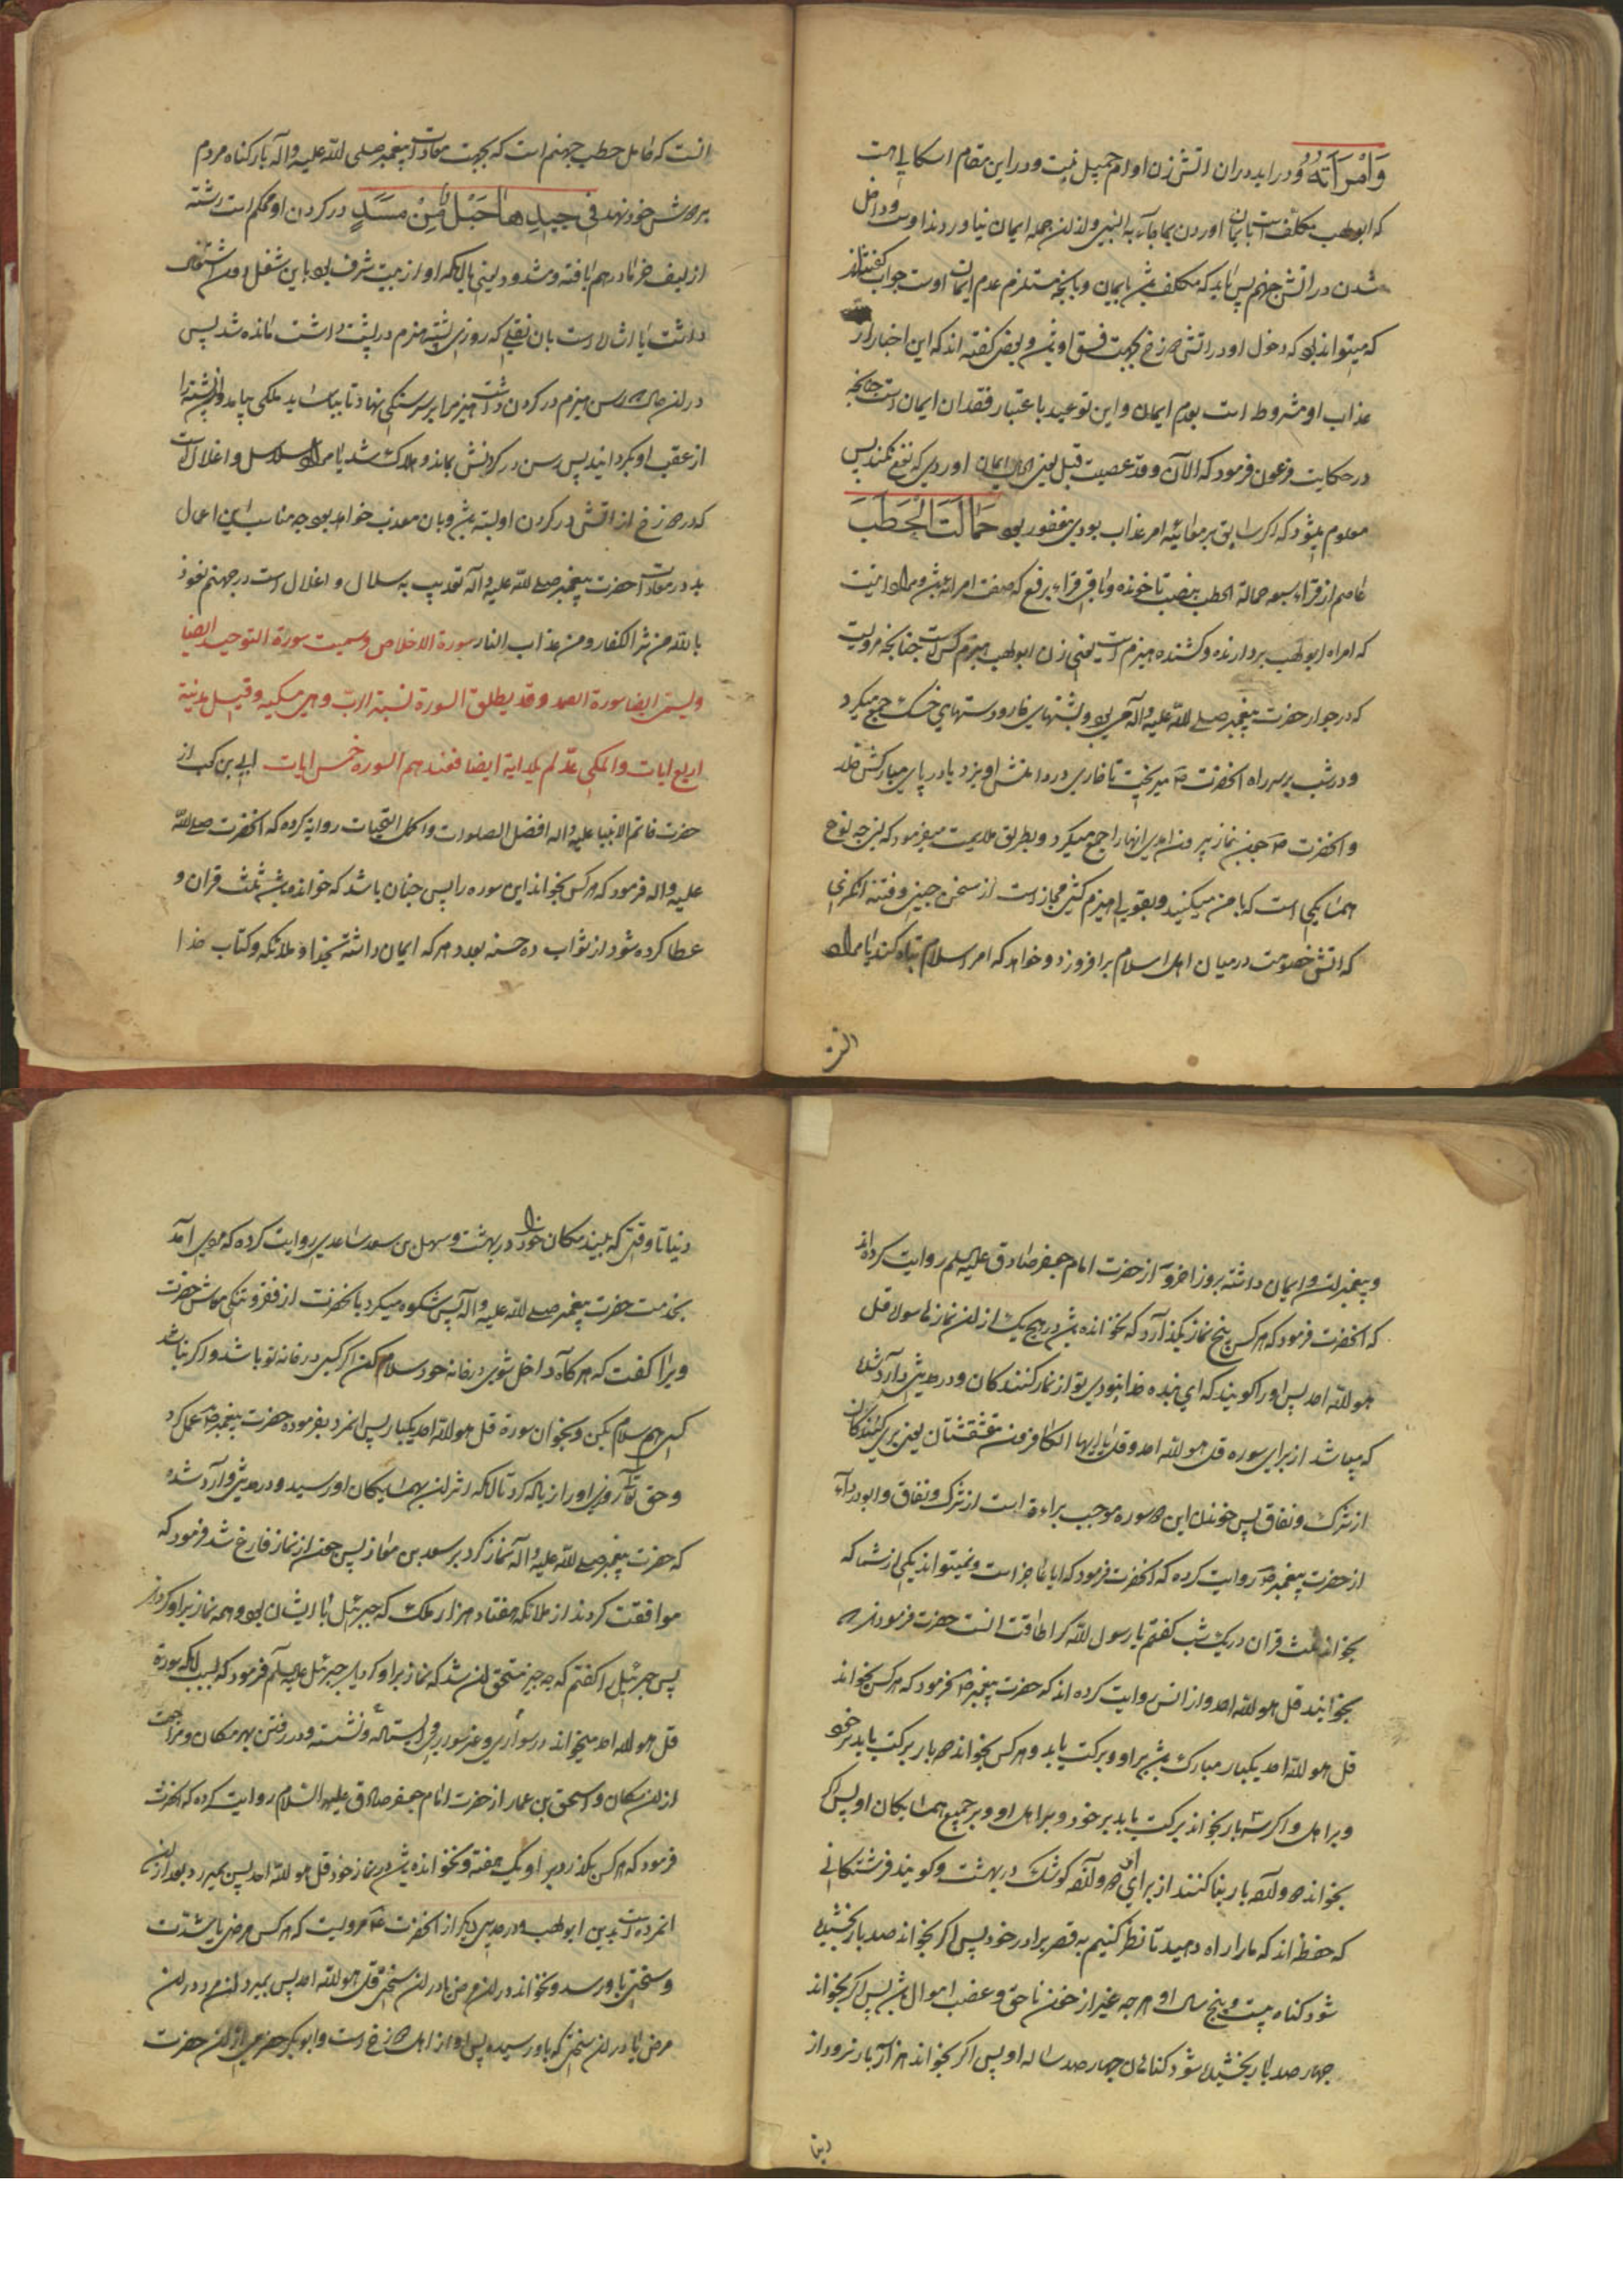 وَامْرَأَتُهُ و در اید دران اتش زن او ام جمیل نیت و در این مقام اشکالی است
که ابولهب مکلف است بایمان اوردن بما جاء به النبی و از ان جمله ایمان نیاوردن اوست و داخل
شدن در اتش جهنم پس باید که مکلف بایمان و بانچه مستلزم عدم ایمان اوست جواب گفته‌اند
که میتواند بود که دخول او در اتش دوزخ بجهت فسق او و بعض گفته اند که این اخبار از
عذاب او مشروط است بعدم ایمان و این توعید باعتبار فقدان ایمان است چنانچه
در حکایت فرعون فرمود که الآن و قد عصیت قبل یعنی ایمان اوردی که نفع نمیکند پس
معلوم میشود که اکر سابق بر معاینه امر عذاب بودی مغفور بود حَمَّالَتَ الْحَطَبَ
عاصم از قراء سبعه حمالة الحطب بنصب تا خوانده و باقی قراء برفع که صفت امراته و مراد اینست
که امراه ابولهب بردارنده و کشنده هیزم است یعنی زن ابولهب هیزم کش است چنانچه مرویست
که در جوار حضرت پیغمبر صلی الله علیه و اله می بود و پشتهای خار و دستهای خسک جمع میکرد
و در شب بر سر راه انحضرت ص میریخت تا خاری در دامنش اویزد یا در پای مبارکش خلد
و انحضرت ص چون بنماز بیرون امدی انها را جمع میکرد و بطریق ملایمت میفرمود که این چه نوع
همسایکی است که با من میکنید و بقولی هیزم کشی مجاز است از سخن چینی و فتنه انکیزی
که اتش خصومت در میان اهل اسلام برافروزد و خواهد که امر اسلام تباه کند یا مراد
انست
انست که حامل حطب جهنم است که بجهت معادات پیغمبر صلی الله علیه و اله بار کناه مردم
بر دوش خود نهد فِی جِیدِهَا حَبْلٌ مِّنْ مَسَدٍ در کردن او محکم است رشته
از لیف خرما در هم بافته و شدود یعنی باانکه او از بیت شرف بود باین شغل دون اشتغال
داشت یا اشارت است بان نقلی که روزی پشته هیزم در پشت داشت مانده شد پس
در ان حال رسن هیزم در کردن داشت هیزم را بر سر سنکی نهاد تا بیاساید ملکی بیامد و ان پشته را
از عقب او بکردانید پس رسن در کردنش بماند و هلاک شد یا مراد سلاسل و اغلال است
که در دوزخ از اتش در کردن او بسته و بان معذب خواهد بود چه مناسب این اعمال
بد در معادات حضرت پیغمبر صلی الله علیه و اله تعذیب به سلاسل و اغلال است در جهنم نعوذ
بالله من شر الکفار و من عذاب النار سورة الاخلاص و سمیت سورة التوحید ایضا
و یسمی ایضا سورة الصمد و قد یطلق السورة نسبة الرب و هی مکیه و قیل مدنیة
اربع ایات و المکی عدّ لم یلد ایة ایضا فعندهم السورة خمس ایات ابی بن کعب از
حضرت خاتم الانبیا علیه و اله افضل الصلوات و اکمل التحیات روایه کرده که انحضرت صلی الله
علیه و اله فرمود که هر کس بخواند این سوره را پس چنان باشد که خوانده ثلث قران و
عطا کرده شود از ثواب ده حسنه بعدد هر که ایمان داشته بخدا و ملائکه و کتاب خدا
و پیغمبران و ایمان داشته بروز اخر و از حضرت امام جعفر صادق علیه السلم روایت کرده‌اند
که انحضرت فرمود که هر کس پنج نماز بکذارد که نخوانده در هیچ یک از ان نماز سوره قل
هو الله احد پس او را کویند که ای بنده خدا نبودی تو از نماز کنندکان و در حدیثی وارد شده
که میباشد از برای سوره قل هو الله احد و قل یا ایها الکافرون مقشقشتان یعنی بری کنندکان
از شرک و نفاق پس خواندن این دو سوره موجب براءة است از شرک و نفاق و ابو درداء
از حضرت پیغمبر ص روایت کرده که انحضرت فرمود که ایا عاجز است و نمیتواند یکی از شما که
بخواند ثلث قران در یک شب کفتم یا رسول الله کرا طاقت انست حضرت فرمودند
بخوانید قل هو الله احد و از انس روایت کرده اند که حضرت پیغمبر ص فرمود که هر کس بخواند
قل هو الله احد یکبار مبارک بر او و برکت یابد و هر کس بخواند دو بار برکت یابد بر خود
و بر اهل و اکر سه بار بخواند برکت یابد بر خود و بر اهل او و بر جمیع همسایکان او پس اکر
بخواند دوازده بار بنا کنند از برای او دوازده کوشک در بهشت و کویند فرشتکانی
که حفظه اند که ما را راه دهید تا نظر کنیم به قصر برادر خود پس اکر بخواند صد بار بخشیده
شود کناه بیست و پنج سال او هر چه غیر از خون ناحق و غصب اموال پس اکر بخواند
چهار صد بار بخشیده شود کناهان چهار صد ساله او پس اکر بخواند هزار بار نرود از
دنیا
دنیا تا وقتی که ببیند مکان خود را در بهشت و سهل بن سعد ساعدی روایت کرده که مردی آمد
بخدمت حضرت پیغمبر صلی الله علیه و اله پس شکوه میکرد بانحضرت از فقر و تنکی معاش حضرت
ویرا کفت که هر کاه داخل شوی در خانه خود سلام کن اکر کسی در خانه تو باشد و اکر نباشد
کسی هم سلام بکن و بخوان سورة قل هو الله احد یکبار پس انمرد بفرموده حضرت پیغمبر ص عمل کرد
و حق تعالی روزی او را زیاد کرد تا انکه اثر ان بهمسایکان او رسید و در حدیثی وارد شده
که حضرت پیغمبر صلی الله علیه و اله نماز کرد بر سعد بن معاذ پس چون از نماز فارغ شد فرمود که
موافقت کردند از ملائکه هفتاد هزار ملک که جبرئیل با ایشان بود و همه نماز بر او کردند
پس جبرئیل را کفتم که به چه چیز مستحق ان شد که نماز بر او کردید جبرئیل علیه السلم فرمود که بسبب انکه سورة
قل هو الله احد میخواند در سواری و غیر سواری و ایستاده و نشسته و در رفتن بهر مکان و مراجعت
از ان مکان و اسحق بن عمار از حضرت امام جعفر صادق علیه السلام روایت کرده که انحضرت
فرمود که هر کس بکذرد بر او یک هفته و نخوانده در نماز خود قل هو الله احد پس بمیرد بعد از ان
انمرده است بدین ابولهب و در حدیثی دیکر از انحضرت ع مرویست که هر کس مرضی یا شدت
و سختی باو رسد و نخواند در ان مرض یا در ان سختی قل هو الله احد پس بمیرد ان مرد در ان
مرض یا در ان سختی که باو رسیده پس او از اهل دوزخ است و ابو بکر حضرمی از ان حضرت